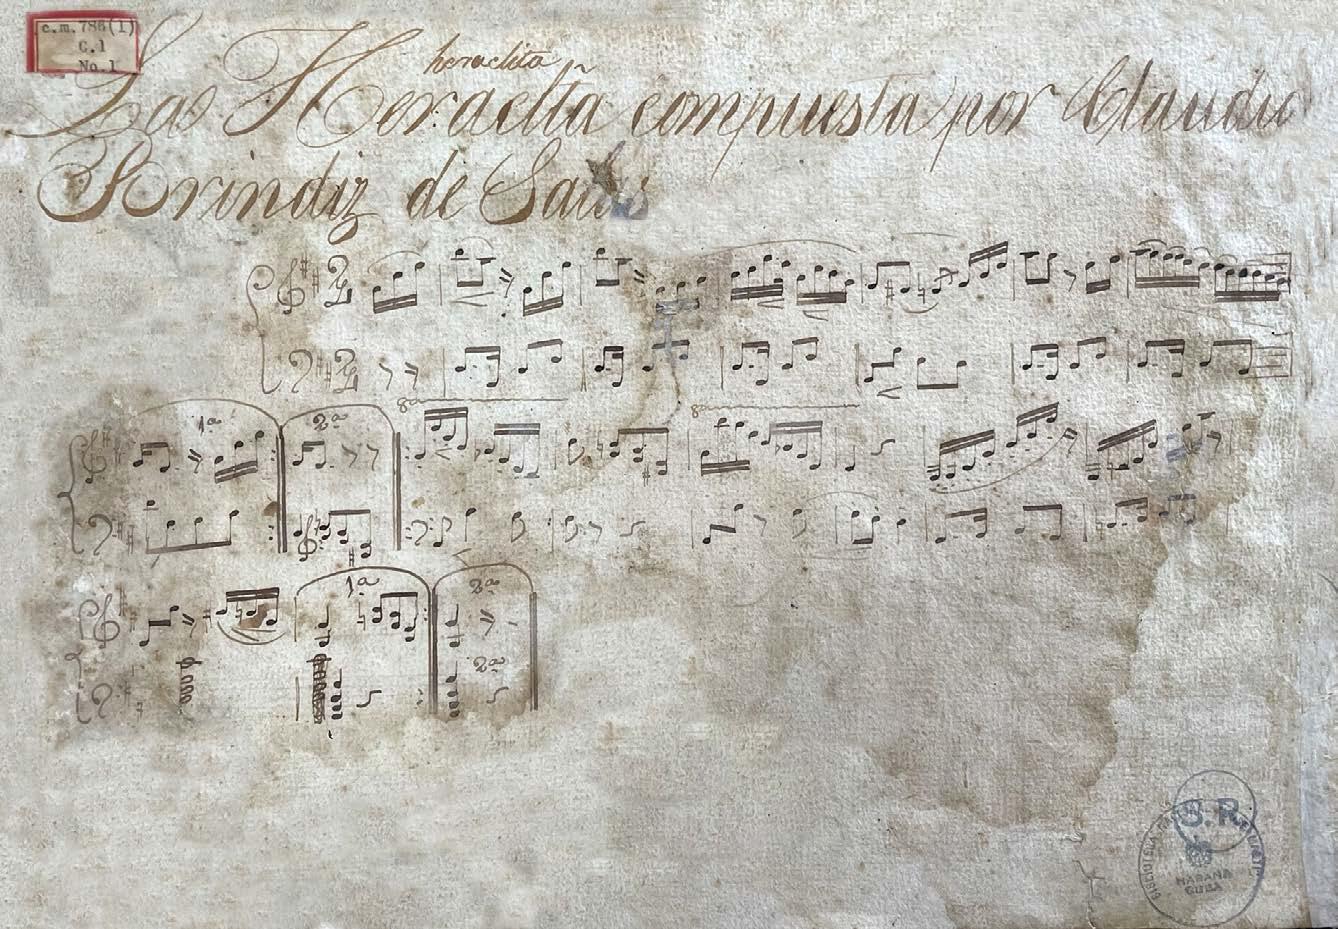 c.m.786(1)
C.1
No.1
heraclita
Las Heraclta compuesta por Claudio
Brindiz de Salas
8va
8va
1ª
2ª
1ª
2ª
2ª
S. R.
BIBLIOTECA
HABANA
CUBA